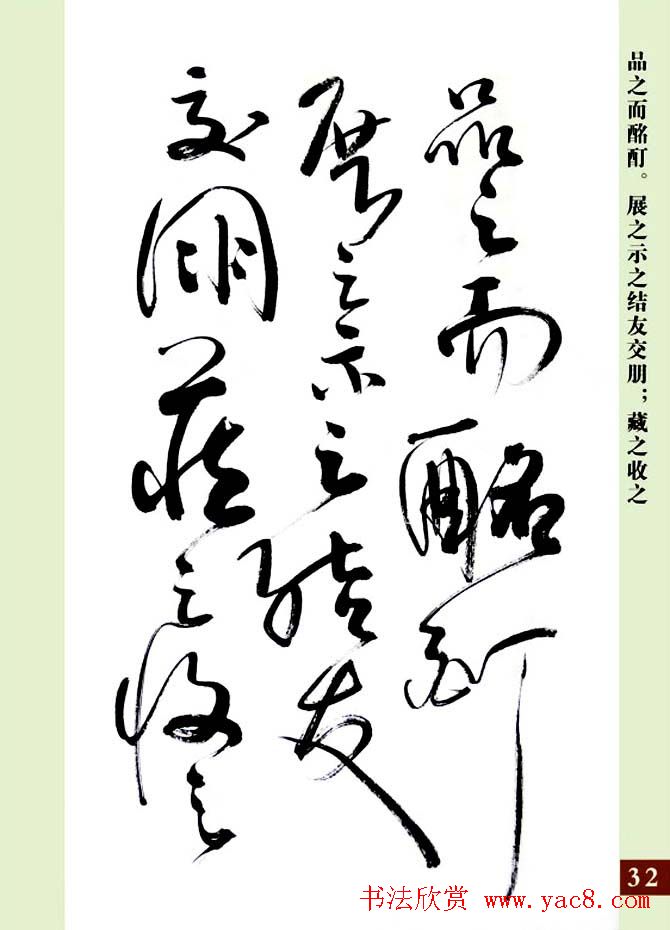 品之而酩酊
展之示之结友
交朋藏之收之
品之而酩酊。展之示之结友交朋；藏之收之
32
书法欣赏 www.yac8.com